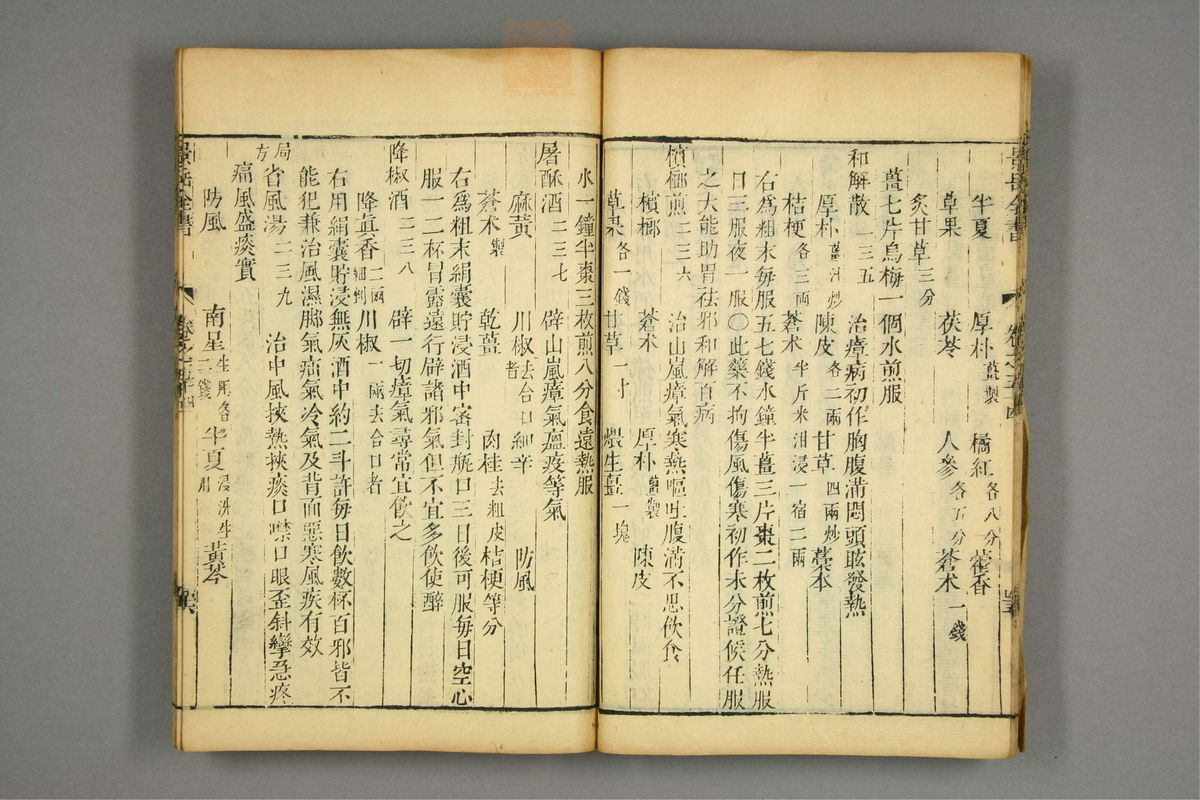 景岳全書
半夏 厚朴薑製 橘紅各八分 藿香
草果 茯苓 人參各五分 蒼术一錢
炙甘草三分
薑七片烏梅一個水煎服
和解散一三五 治瘴病初作胸腹滿悶頭眩發熱
厚朴薑汁炒 陳皮各二兩 甘草四兩炒 藁本
桔梗各三兩 蒼术半斤米泔浸一宿二兩
右為粗末每服五七錢水鐘半薑三片棗二枚煎七分熱服
日三服夜一服○此藥不拘傷風傷寒初作未分證候任服
之大能助胃祛邪和解百病
檳榔煎二三六 治山嵐瘴氣寒熱嘔吐腹滿不思飲食
檳榔 蒼术 厚朴薑製 陳皮
草果各一錢 甘草一寸 煨生薑一塊
水一鐘半棗三枚煎八分食遠熱服
屠酥酒二三七 辟山嵐瘴氣瘟疫等氣
麻黃 川椒去合口者 細辛 防風
蒼术製 乾薑 肉桂去粗皮 桔梗等分
右為粗末絹囊貯浸酒中密封瓶口三日後可服每日空心
服一二杯冒露遠行辟諸邪氣但不宜多飲使醉
降椒酒二三八 辟一切瘴氣尋常宜飲之
降真香二兩細剉 川椒一兩去合口者
右用絹囊貯浸無灰酒中約二斗許每日飲數杯百邪皆不
能犯兼治風濕脚氣疝氣冷氣及背面惡寒風疾有效
局方省風湯二三九 治中風挾熱挾痰口噤口眼歪斜攣急疼
痛風盛痰實
防風 南星生用各二錢 半夏浸洗生用 黃芩
景岳全書